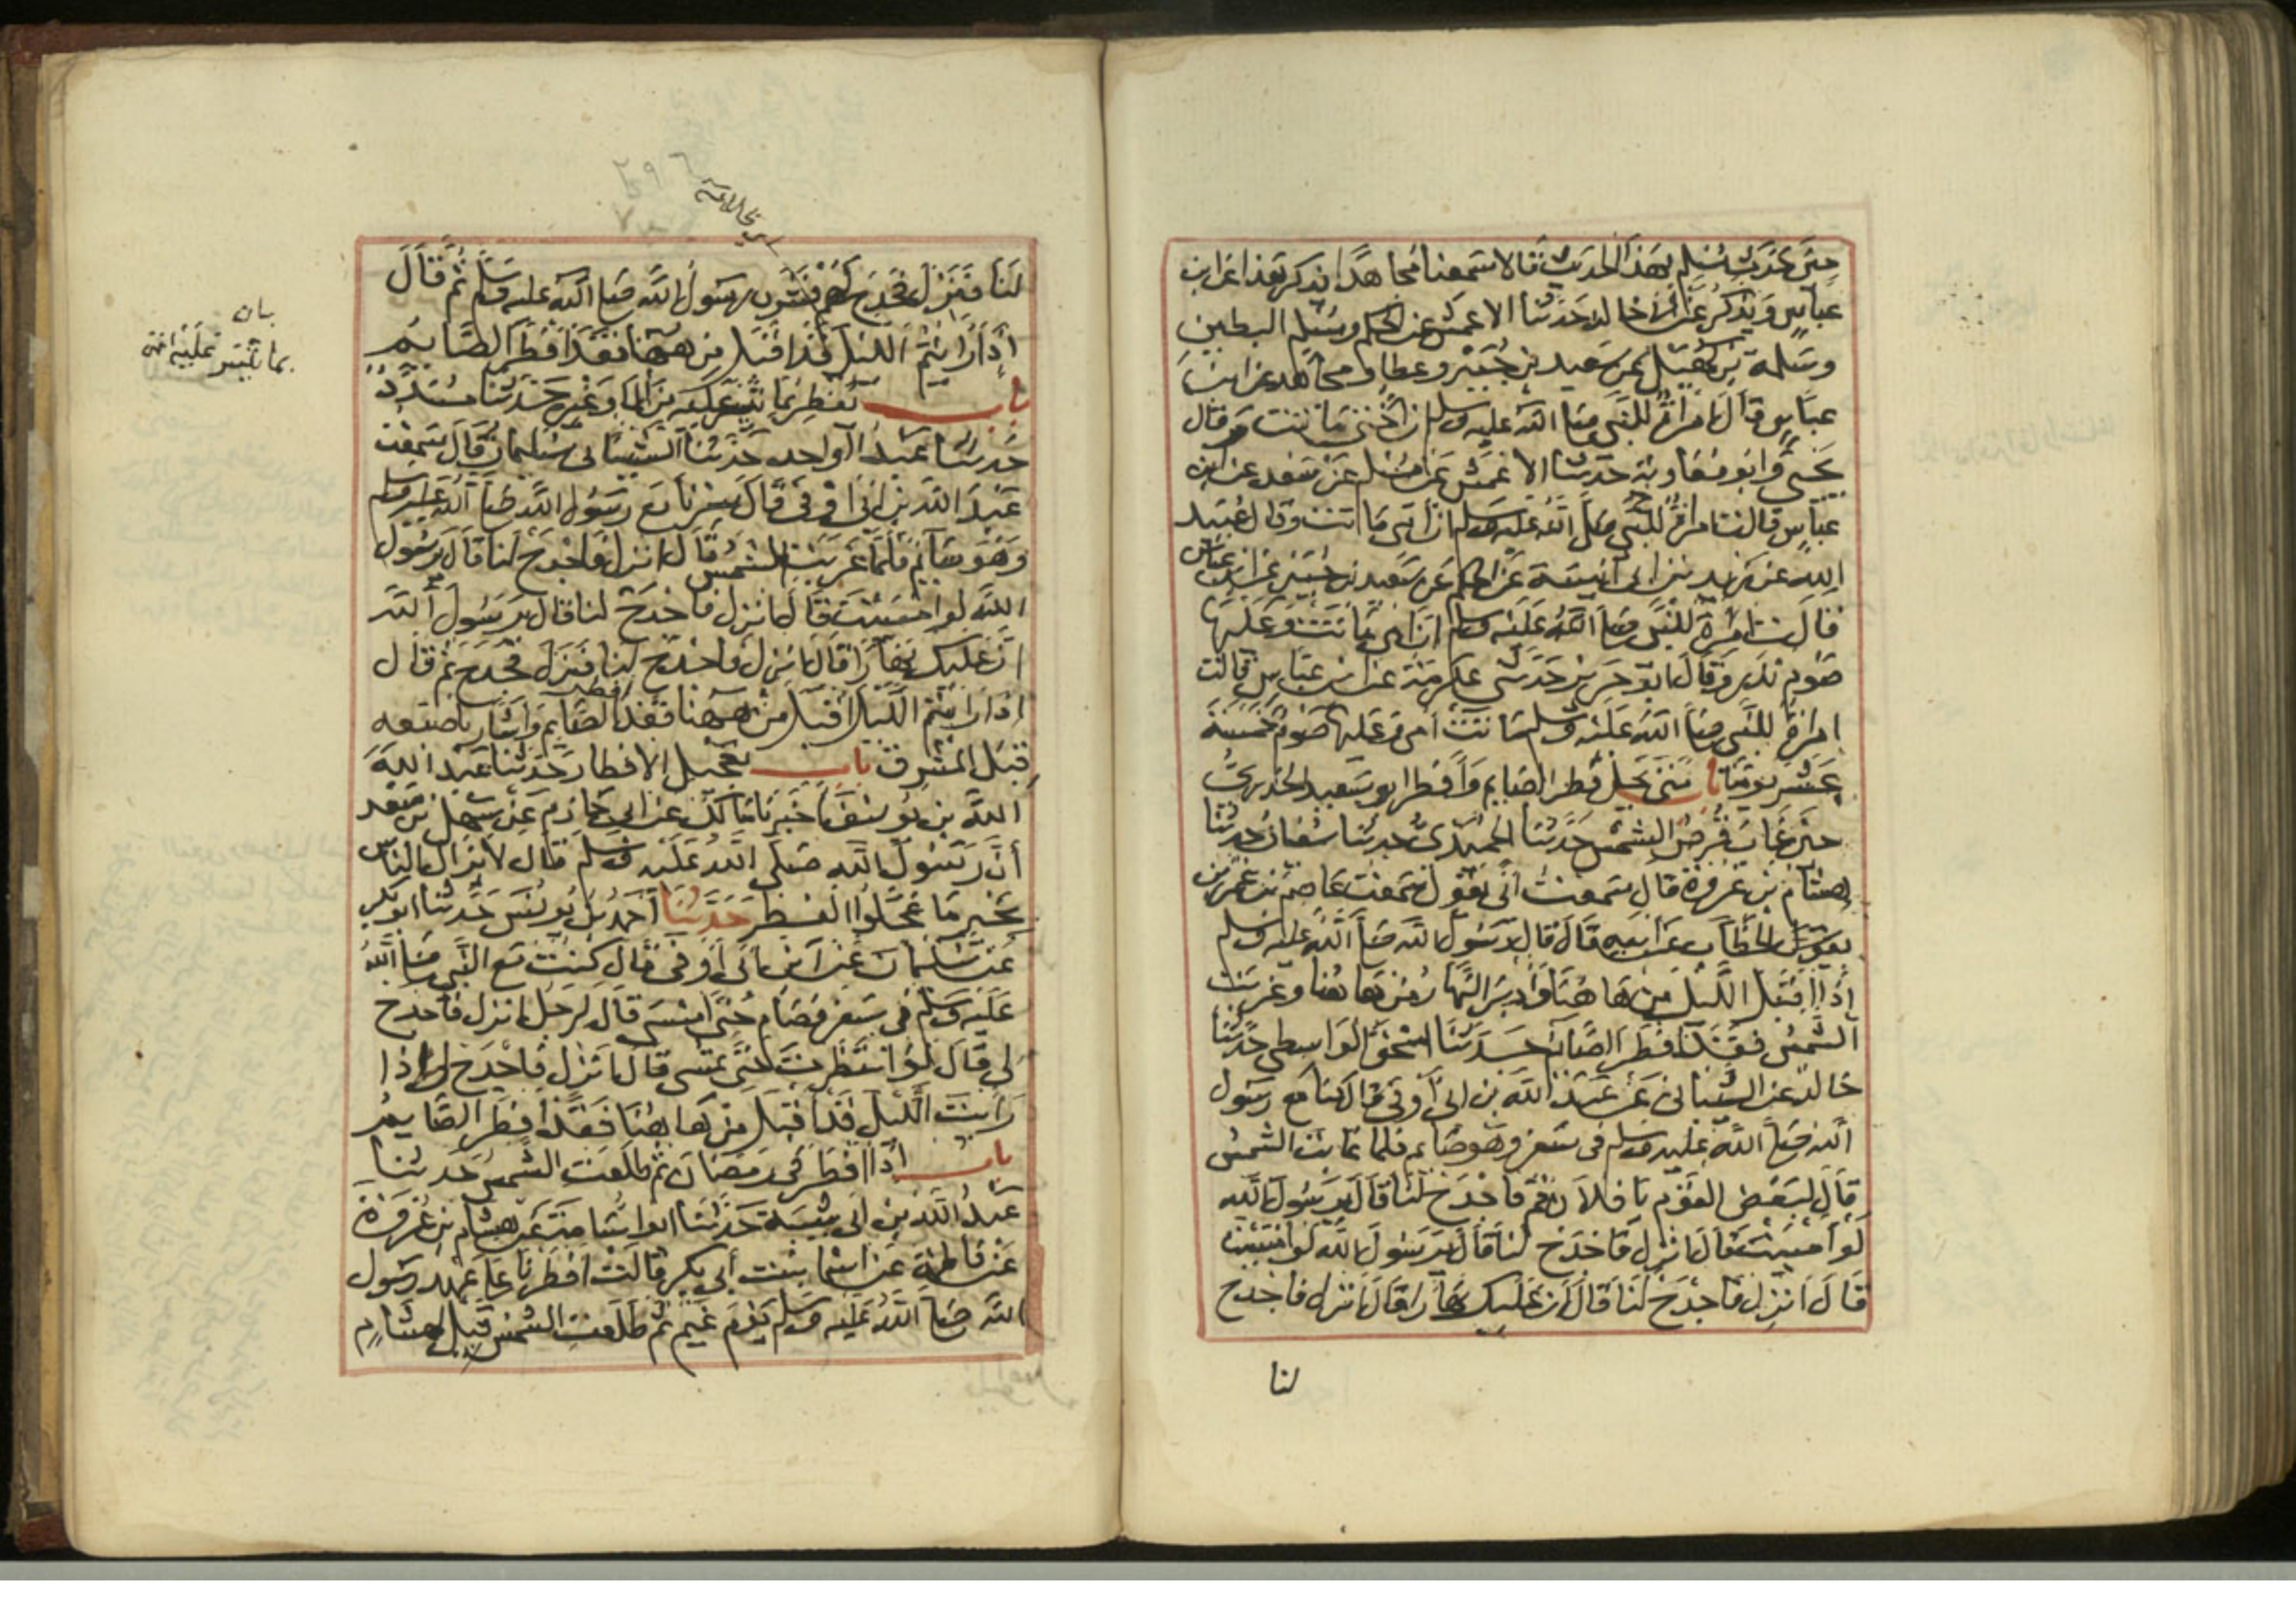 حين حدث مسلم بهذا الحديث قالا سمعنا مجاهدا يذكر هذا عن ابن
عباس ويذكر عن ابي خالد حدثنا الاعمش عن الحكم ومسلم البطين
وسلمة بن كهيل عن سعيد بن جبير وعطاء ومجاهد عن ابن
عباس قال امراة للنبي صلى الله عليه وسلم ان اختي ماتت وقال
يحيى وابو معاوية حدثنا الاعمش عن مسلم عن سعيد عن ابن
عباس قالت امراة للنبي صلى الله عليه وسلم ان امي ماتت وقال عبيد
الله عن زيد بن ابي انيسة عن الحكم عن سعيد بن جبير عن ابن عباس
قالت امراة للنبي صلى الله عليه وسلم ان امي ماتت وعليها
صوم نذر وقال ابو حريز حدثني عكرمة عن ابن عباس قالت
امراة للنبي صلى الله عليه وسلم ماتت امي وعليها صوم خمسة
عشر يوما باب متى يحل فطر الصايم وافطر ابو سعيد الخدري
حين غاب قرص الشمس حدثنا الحميدي حدثنا سفيان حدثنا
هشام بن عروة قال سمعت ابي يقول سمعت عاصم بن عمر بن
الخطاب عن ابيه قال قال رسول الله صلى الله عليه وسلم
اذا اقبل الليل من ها هنا وادبر النهار من ها هنا وغربت
الشمس فقد افطر الصائم حدثنا اسحق الواسطي حدثنا
خالد عن الشيباني عن عبد الله بن ابي اوفى قال كنا مع رسول
الله صلى الله عليه وسلم في سفر وهو صايم فلما غابت الشمس
قال لبعض القوم يا فلان قم فاجدح لنا قال يرسول الله
لو امسيت قال انزل فاجدح لنا قال يرسول الله لو امسيت
قال انزل فاجدح لنا قال ان عليك نهارا قال انزل فاجدح
لنا
لنا فنزل فجدح لهم فشرب رسول الله صلى الله عليه وسلم ثم قال
اذا رايتم الليل قد اقبل من ههنا فقد افطر الصايم
باب يفطر بما تيسر عليه من الماء وغيره حدثنا مسدد
حدثنا عبد الواحد حدثنا الشيباني سليمان قال سمعت
عبد الله بن ابي اوفى قال سرنا مع رسول الله صلى الله عليه وسلم
وهو صايم فلما غربت الشمس قال انزل فاجدح لنا قال يرسول
الله لو امسيت قال انزل فاجدح لنا قال يرسول الله
ان عليك نهارا قال انزل فاجدح لنا فنزل فجدح ثم قال
اذا رايتم الليل اقبل من ههنا فقد افطر الصايم واشار باصبعه
قبل المشرق باب تعجيل الافطار حدثنا عبد الله
الله بن يوسف اخبرنا مالك عن ابي حازم عن سهل بن سعد
أن رسول الله صلى الله عليه وسلم قال لا يزال الناس
بخير ما عجلوا الفطر حدثنا احمد بن يونس حدثنا ابو بكر
عن سليمان عن ابن ابي اوفى قال كنت مع النبي صلى الله
عليه وسلم في سفر فصام حتى امسى قال لرجل انزل فاجدح
لي قال لو انتظرت حتى تمسي قال انزل فاجدح لي اذا
رايت الليل قد اقبل من ها هنا فقد افطر الصايم
باب اذا افطر في رمضان ثم طلعت الشمس حدثنا
عبد الله بن ابي شيبة حدثنا ابو اسامة عن هشام بن عروة
عن فاطمة عن اسما بنت أبي بكر قالت افطرنا على عهد رسول
الله صلى الله عليه وسلم يوم غيم ثم طلعت الشمس قيل لهشام
باب
بما تيسر عليه